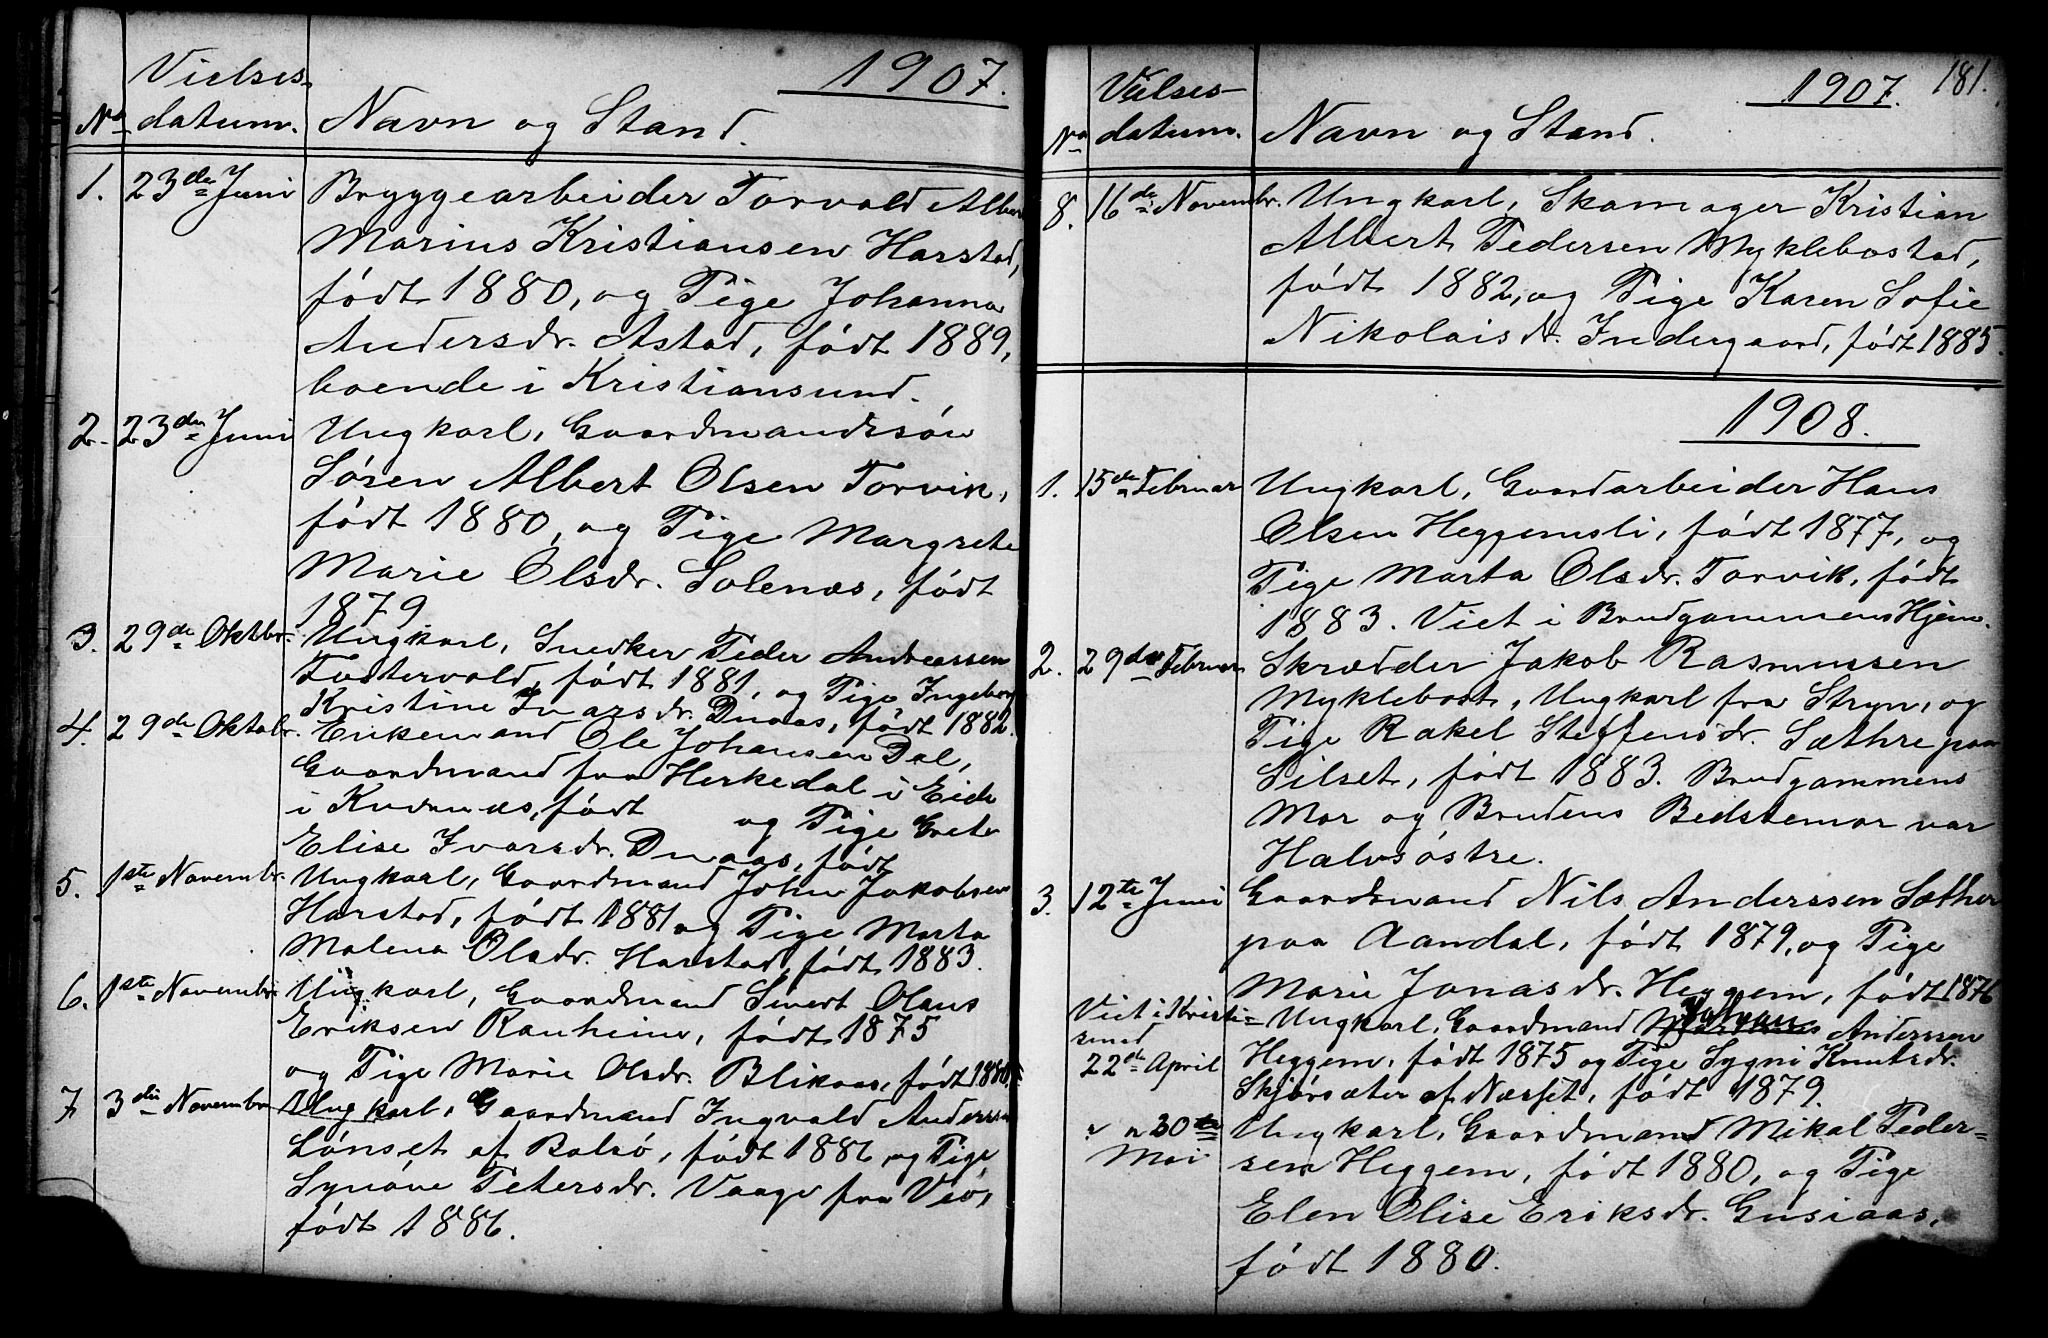 1907.
Vielses-
No datum. Navn og Stand.
1. 23de Juni Bryggearbeider Torvald Albert
Marius Kristiansen Harstad,
født 1880, og Pige Johanna
Andersdr. Astad, født 1889,
boende i Kristiansund.
2. 23de Juni Ungkarl, Gaardmandssøn
Søren Albert Olsen Torvik,
født 1880, og Pige Margrete
Marie Olsdr. Solenæs, født
1879
3. 29de Oktbr. Ungkarl, Snedker Peder Andreassen
Fostervold, født 1881, og Pige Ingeborg
Kristine Ivarsdr. Duaas, født 1882.
4. 29de Oktobr. Enkemand Ole Johansen Dal,
Gaardmand fra Herkedal i Eide
i Kvernæs, født og Pige Grete
Elise Ivarsdr. Duaas, født
5. 1ste Novembr. Ungkarl, Gaardmand John Jakobsen
Harstad, født 1881 og Pige Marta
Malena Olsdr. Harstad, født 1883.
6. 1ste Novembr. Ungkarl, Gaardmand Sivert Olaus
Eriksen Ranheim, født 1875
og Pige Marie Olsdr. Blikaas, født 1880
7. 3die Novembr. Ungkarl, Gaardmand Ingvald Anderssen
Lønset af Bolsø, født 1886, og Pige
Synøve Petersdr. Vaage fra Veø,
født 1886.
1907. 181.
Vielses-
No datum. Navn og Stand.
8. 16de Novembr. Ungkarl, Skomager Kristian
Albert Pedersen Myklebostad,
født 1882, og Pige Karen Sofie
Nikolaisdr. Indergaard, født 1885.
1908.
1. 15de Februar Ungkarl, Gaardarbeider Hans
Olsen Heggemsli, født 1877, og
Pige Marta Olsdr. Torvik, født
1883. Viet i Brudgommens Hjem.
2. 29de Februar Skrædder Jakob Rasmussen
Myklebost, Ungkarl fra Stryn, og
Pige Rakel Steffensdr. Sæthre paa
Silset, født 1883. Brudgommens
Mor og Brudens Bedstemor var
Halvsøstre.
3. 12te Juni Gaardmand Nils Anderssen Sæther
paa Aandal, født 1879, og Pige
Marie Jonasdr. Heggem, født 1876
Viet i Kristi- Ungkarl, Gaardmand Johan Anderssen
sund
22de April Heggem, født 1875 og Pige Sygni Knutsdr.
Skjørsæter af Næsset, født 1879.
" " 30te Ungkarl, Gaardmand Mikal Peder-
Mai sen Heggem, født 1880, og Pige
Elen Olise Eriksdr. Gusiaas,
født 1880.